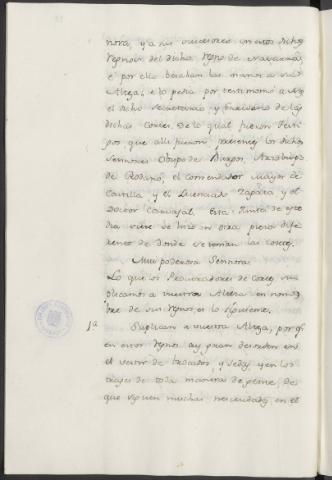 nora, y a sus succesores en estos dichos
regnos, i el dicho regno de Navarra,
é por ello besaban las manos a su
Alteza, é lo pedia por testimonio a mi
el dicho Secretario y Escribano de las
dichas Cortes. De lo qual fueron testi
gos que alli fueron presentes los dichos
Señores Obispo de Burgos, Arzobispo
de Rosano, el Comendador Mayor de
Castilla, y el Licenciado Zapata y el
Doctor Carvajal. Esta Junta de este
dia viene se hizo en otra pieza dife
rente de donde se tenian las Cortes.
Mui poderosa Sennora
Lo que los Procuradores de Cortes su
plicamos a vuestra Alteza en nom
bre de sus regnos es lo siguiente.
1ª Suplican a vuestra Alteza, por q.
en estos regnos ay gran desorden en
el vestir de brocados, y sedas y en los
trajes de toda manera de gente, de
que siguen muchas necesidades en el